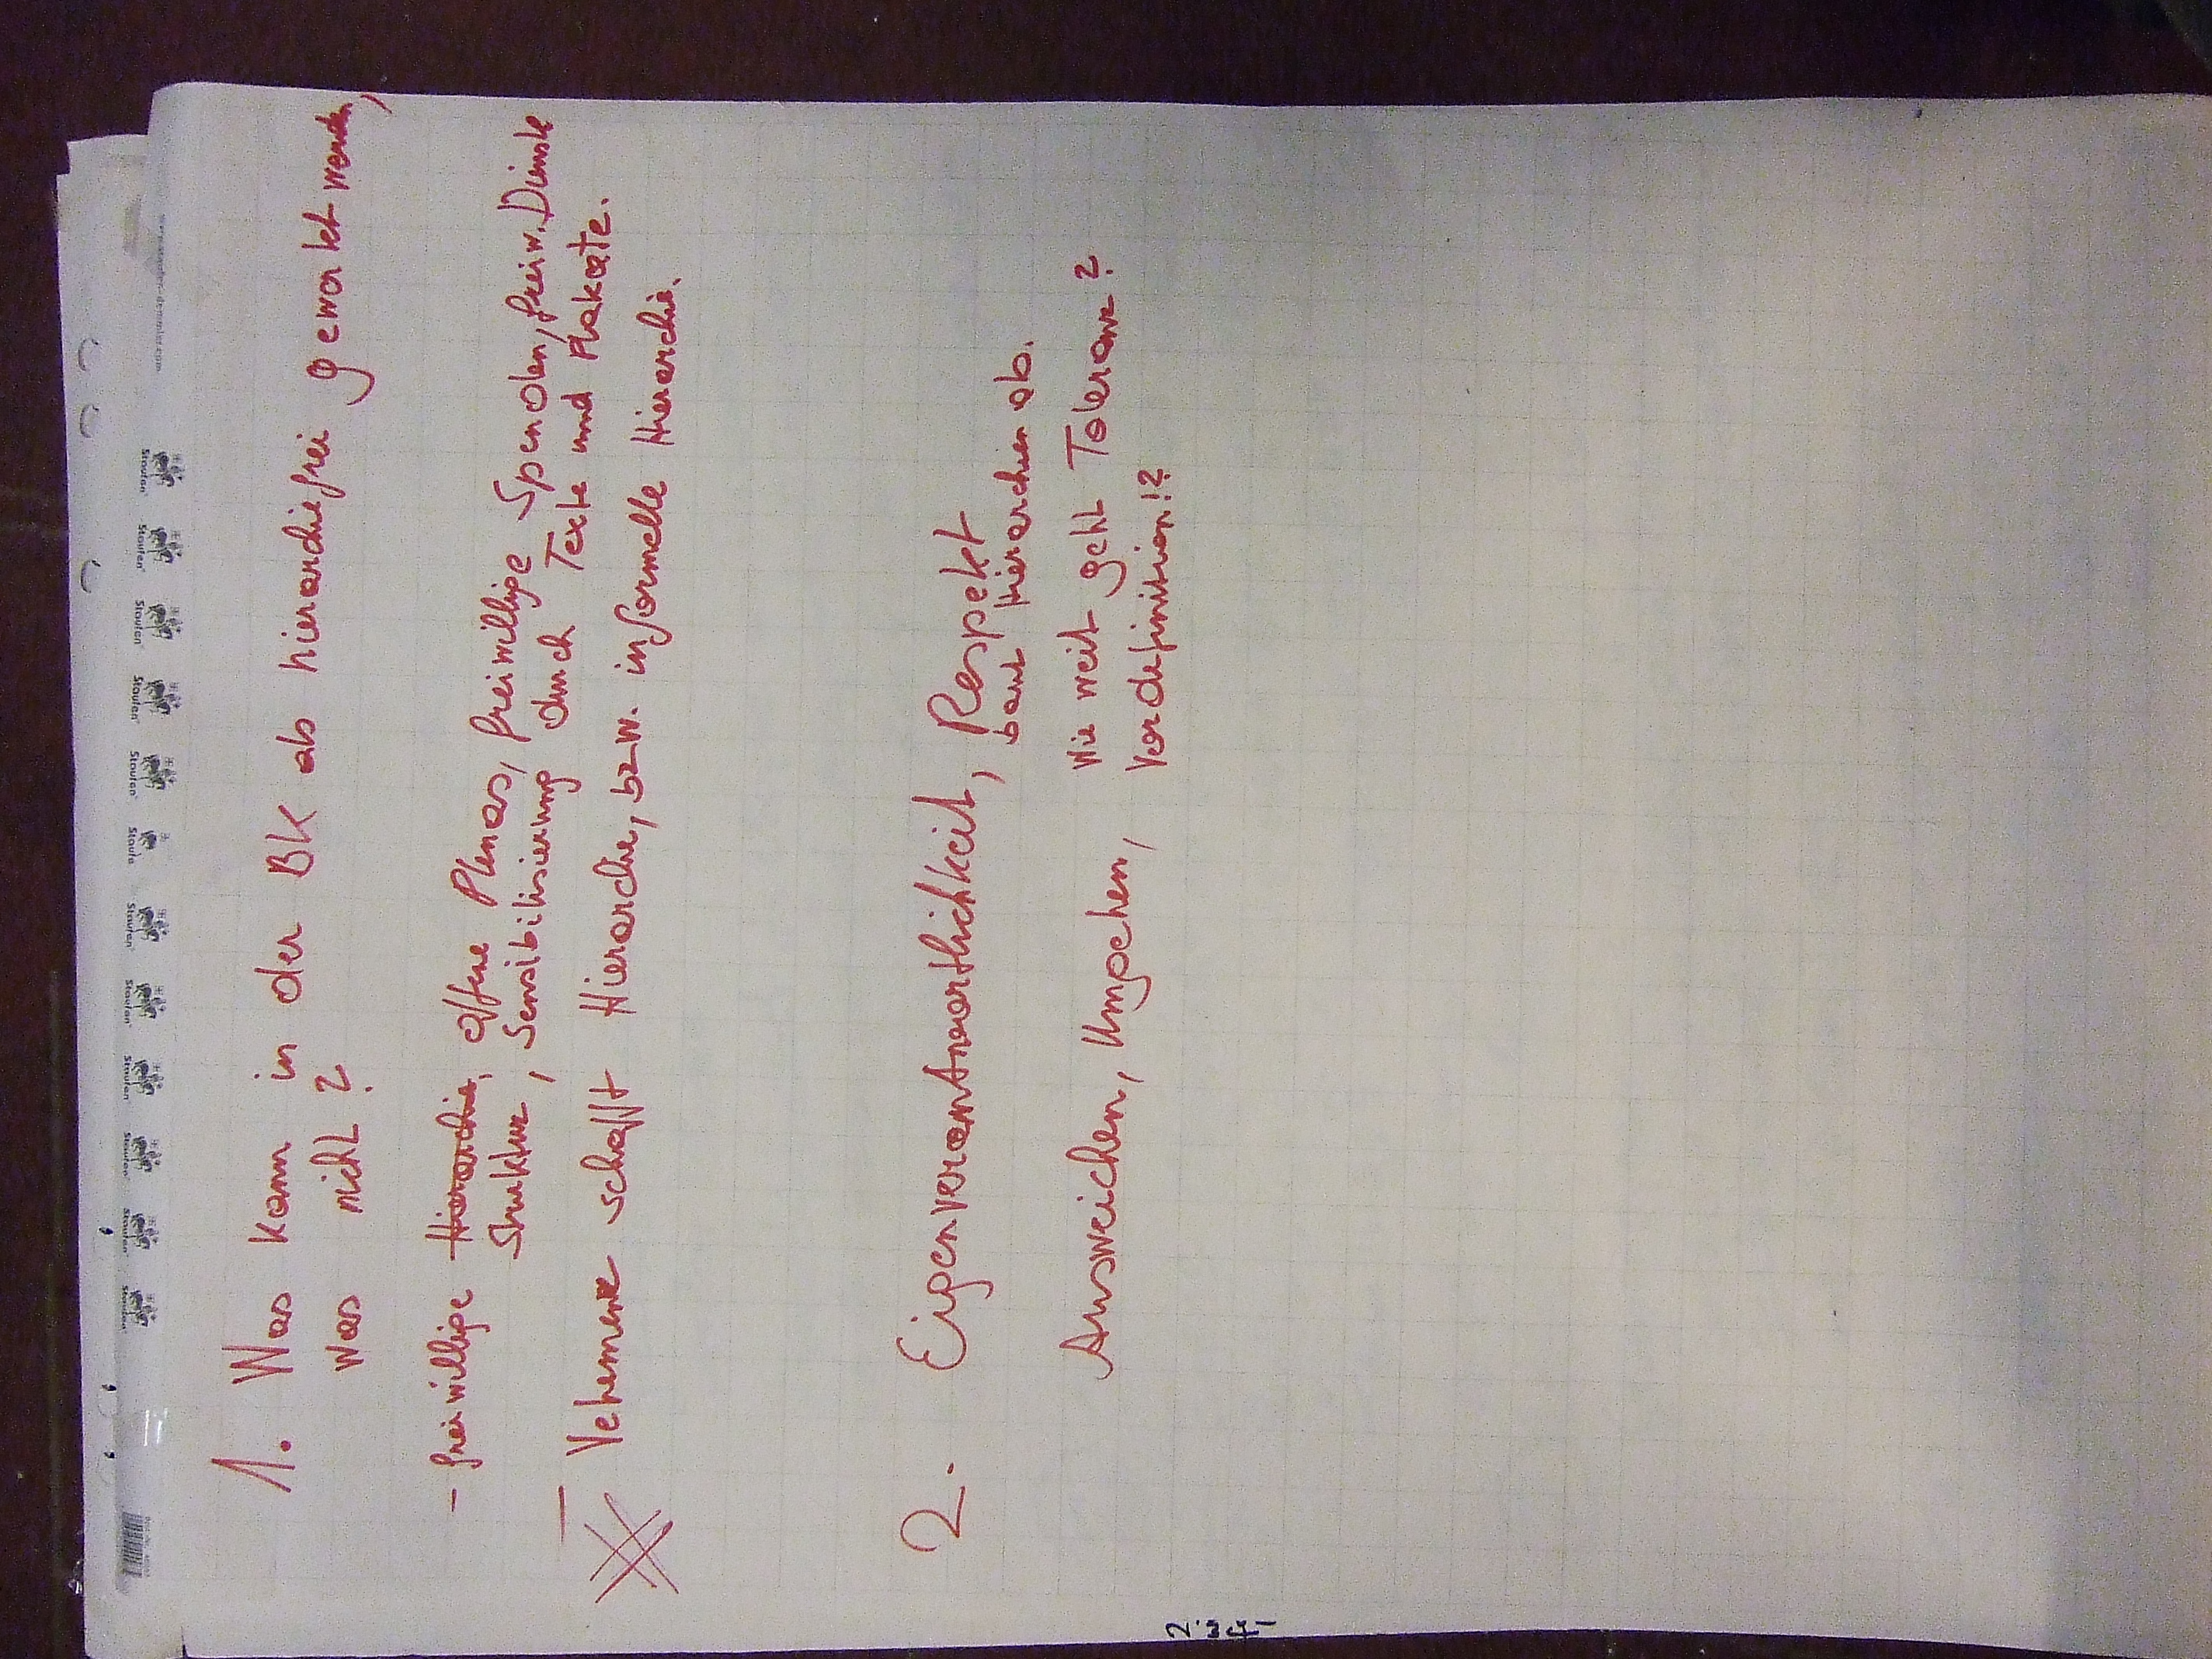 1. Was kann in der BK ab hierarchiefrei gewertet werden,
was nicht?
- freiwillige Hierarchie, offene Plenas, freiwillige Spenden, freiw. Dienste
Struktur, Sensibilisierung durch Texte und Plakate.
- Vehemenz schafft Hierarchie, bzw. informelle Hierarchie.
2. Eigenverantwortlichkeit, Respekt
baut Hierarchien ab.
Ausweichen, Umgehen, Wie weit geht Toleranz?
Vordefinition!?
Staufen
Staufen
Staufen
Staufen
Staufen
Staufen
Staufen
Staufen
Staufen
Staufen
Staufen